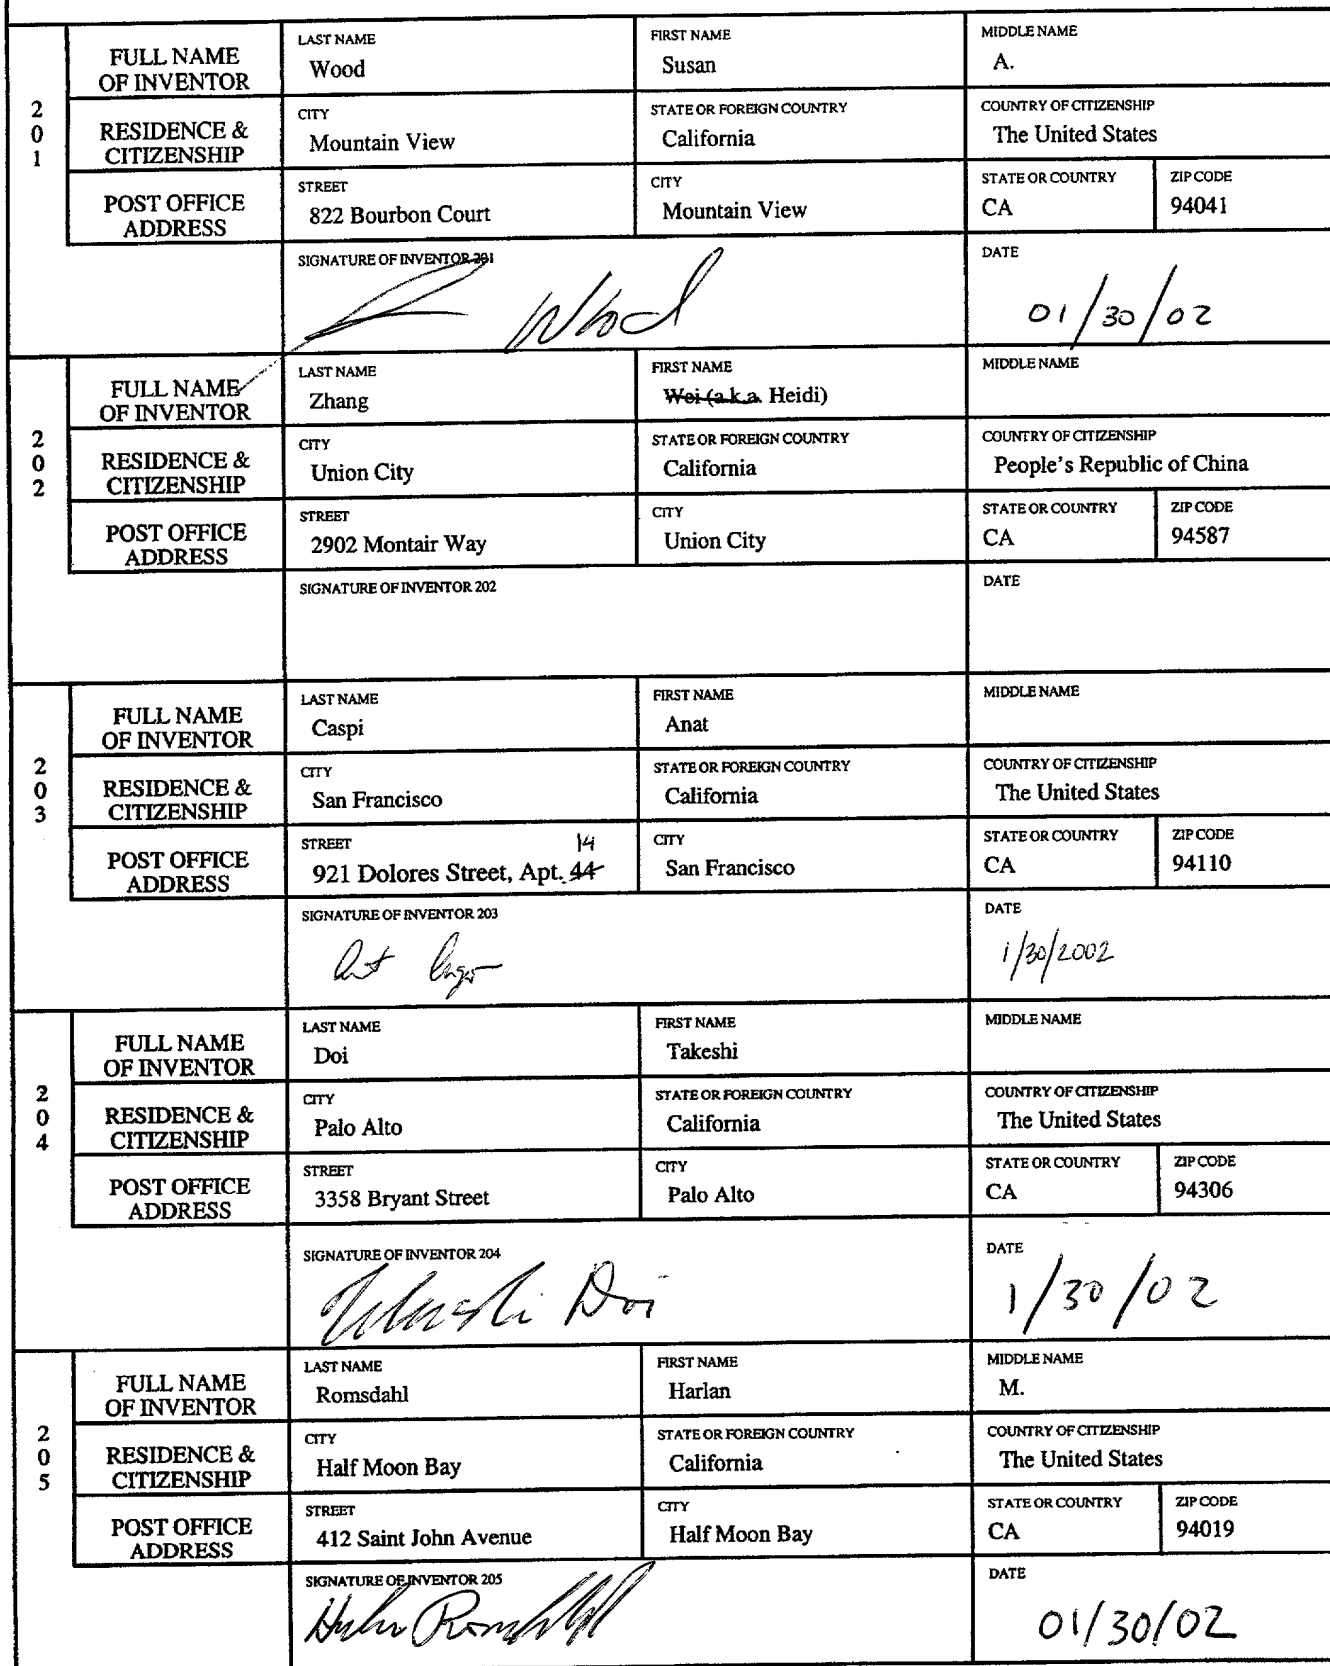 201
FULL NAME OF INVENTOR
LAST NAME
Wood
FIRST NAME
Susan
MIDDLE NAME
A.
RESIDENCE & CITIZENSHIP
CITY
Mountain View
STATE OR FOREIGN COUNTRY
California
COUNTRY OF CITIZENSHIP
The United States
POST OFFICE ADDRESS
STREET
822 Bourbon Court
CITY
Mountain View
STATE OR COUNTRY
CA
ZIP CODE
94041
SIGNATURE OF INVENTOR 201
Wood
DATE
01/30/02
202
FULL NAME OF INVENTOR
LAST NAME
Zhang
FIRST NAME
Wei (a.k.a. Heidi)
MIDDLE NAME
RESIDENCE & CITIZENSHIP
CITY
Union City
STATE OR FOREIGN COUNTRY
California
COUNTRY OF CITIZENSHIP
People's Republic of China
POST OFFICE ADDRESS
STREET
2902 Montair Way
CITY
Union City
STATE OR COUNTRY
CA
ZIP CODE
94587
SIGNATURE OF INVENTOR 202
DATE
203
FULL NAME OF INVENTOR
LAST NAME
Caspi
FIRST NAME
Anat
MIDDLE NAME
RESIDENCE & CITIZENSHIP
CITY
San Francisco
STATE OR FOREIGN COUNTRY
California
COUNTRY OF CITIZENSHIP
The United States
POST OFFICE ADDRESS
STREET
14
921 Dolores Street, Apt. 44
CITY
San Francisco
STATE OR COUNTRY
CA
ZIP CODE
94110
SIGNATURE OF INVENTOR 203
DATE
1/30/2002
204
FULL NAME OF INVENTOR
LAST NAME
Doi
FIRST NAME
Takeshi
MIDDLE NAME
RESIDENCE & CITIZENSHIP
CITY
Palo Alto
STATE OR FOREIGN COUNTRY
California
COUNTRY OF CITIZENSHIP
The United States
POST OFFICE ADDRESS
STREET
3358 Bryant Street
CITY
Palo Alto
STATE OR COUNTRY
CA
ZIP CODE
94306
SIGNATURE OF INVENTOR 204
Takeshi Doi
DATE
1/30/02
205
FULL NAME OF INVENTOR
LAST NAME
Romsdahl
FIRST NAME
Harlan
MIDDLE NAME
M.
RESIDENCE & CITIZENSHIP
CITY
Half Moon Bay
STATE OR FOREIGN COUNTRY
California
COUNTRY OF CITIZENSHIP
The United States
POST OFFICE ADDRESS
STREET
412 Saint John Avenue
CITY
Half Moon Bay
STATE OR COUNTRY
CA
ZIP CODE
94019
SIGNATURE OF INVENTOR 205
Harlan Romsdahl
DATE
01/30/02